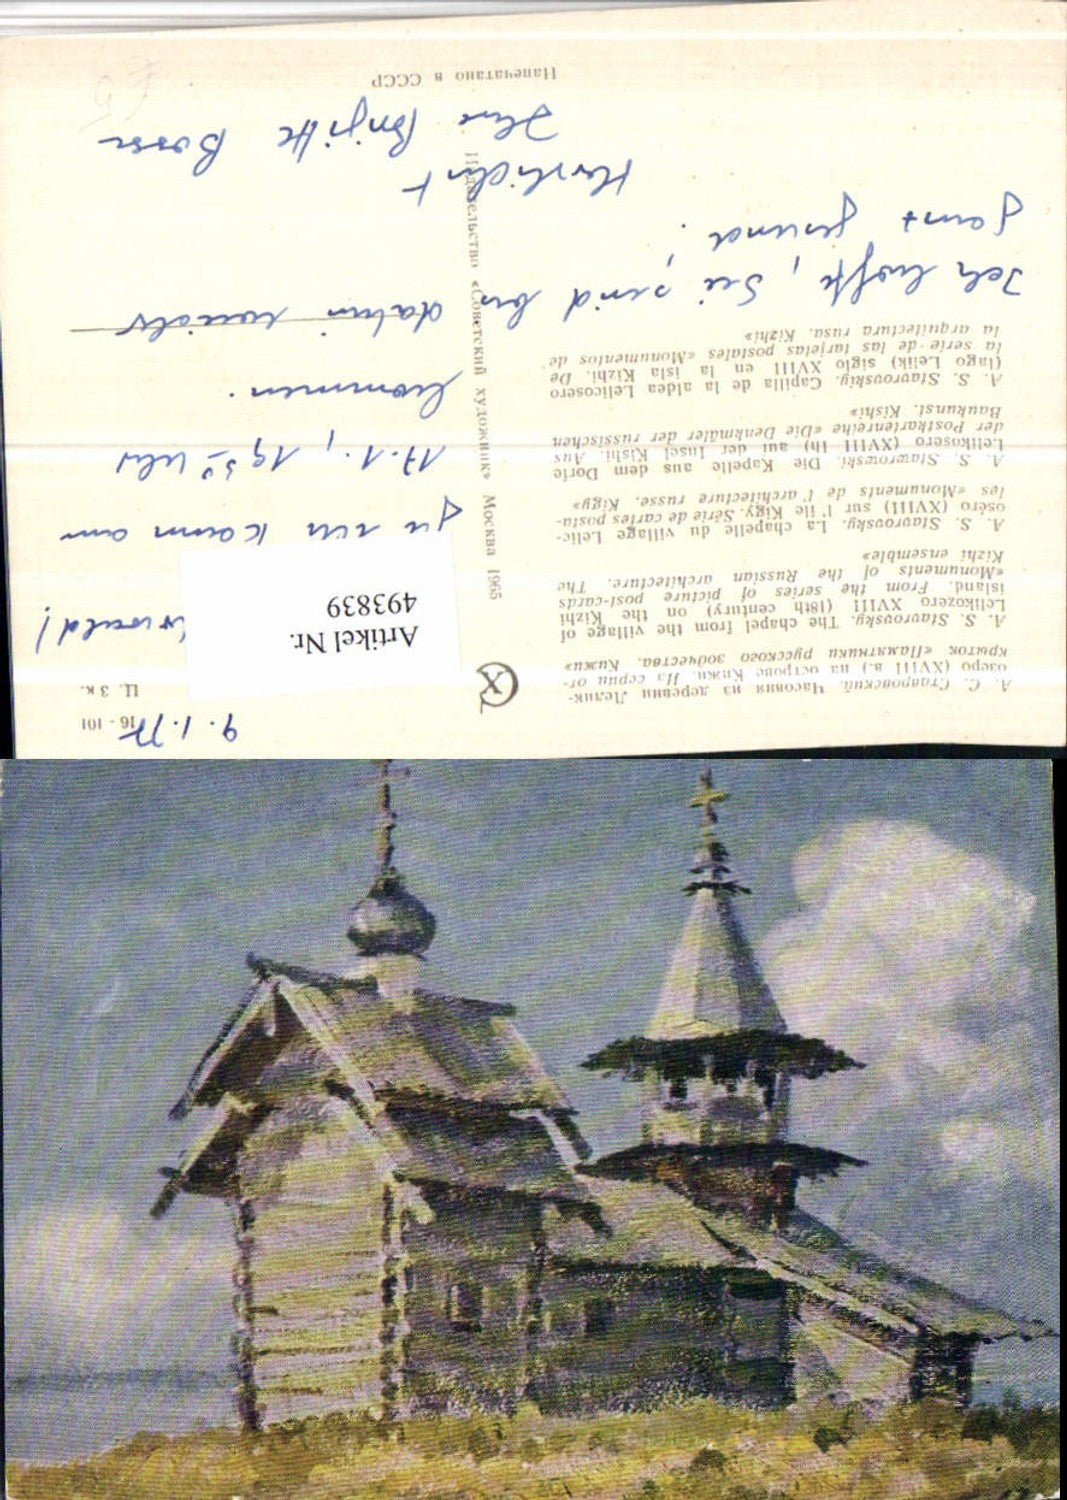 А. С. Ставровский. Часовня из деревни Лелик-
озеро (XVIII в.) на острове Кижи. Из серии от-
крыток «Памятники русского зодчества. Кижи»
A. S. Stavrovsky. The chapel from the village of
Lelikozero XVIII (18th century) on the Kizhi
island. From the series of picture post-cards
«Monuments of the Russian architecture. The
Kizhi ensemble»
A. S. Stavrovsky. La chapelle du village Lelic-
oséro (XVIII) sur l'île Kigy. Série de cartes posta-
les «Monuments de l'architecture russe. Kigy»
A. S. Stawrowski. Die Kapelle aus dem Dorfe
Lelikosero (XVIII Ih) auf der Insel Kishi. Aus
der Postkartenreihe «Die Denkmäler der russischen
Baukunst. Kishi»
A. S. Stavrovskiy. Capilla de la aldea Lelicosero
(lago Lelik) siglo XVIII en la isla Kizhi. De
la serie de las tarjetas postales «Monumentos de
la arquitectura rusa. Kizhi»
Ich hoffe, Sie sind bis dahin wieder
ganz gesund.
Herzlichst
Ihre Brigitte
Издательство «Советский художник» Москва 1965
16-101
Ц. 3 к.
9.1.77
Artikel Nr.
493839
Ja ich kann am
17.1., 19³⁰ Uhr
kommen.
Напечатано в СССР